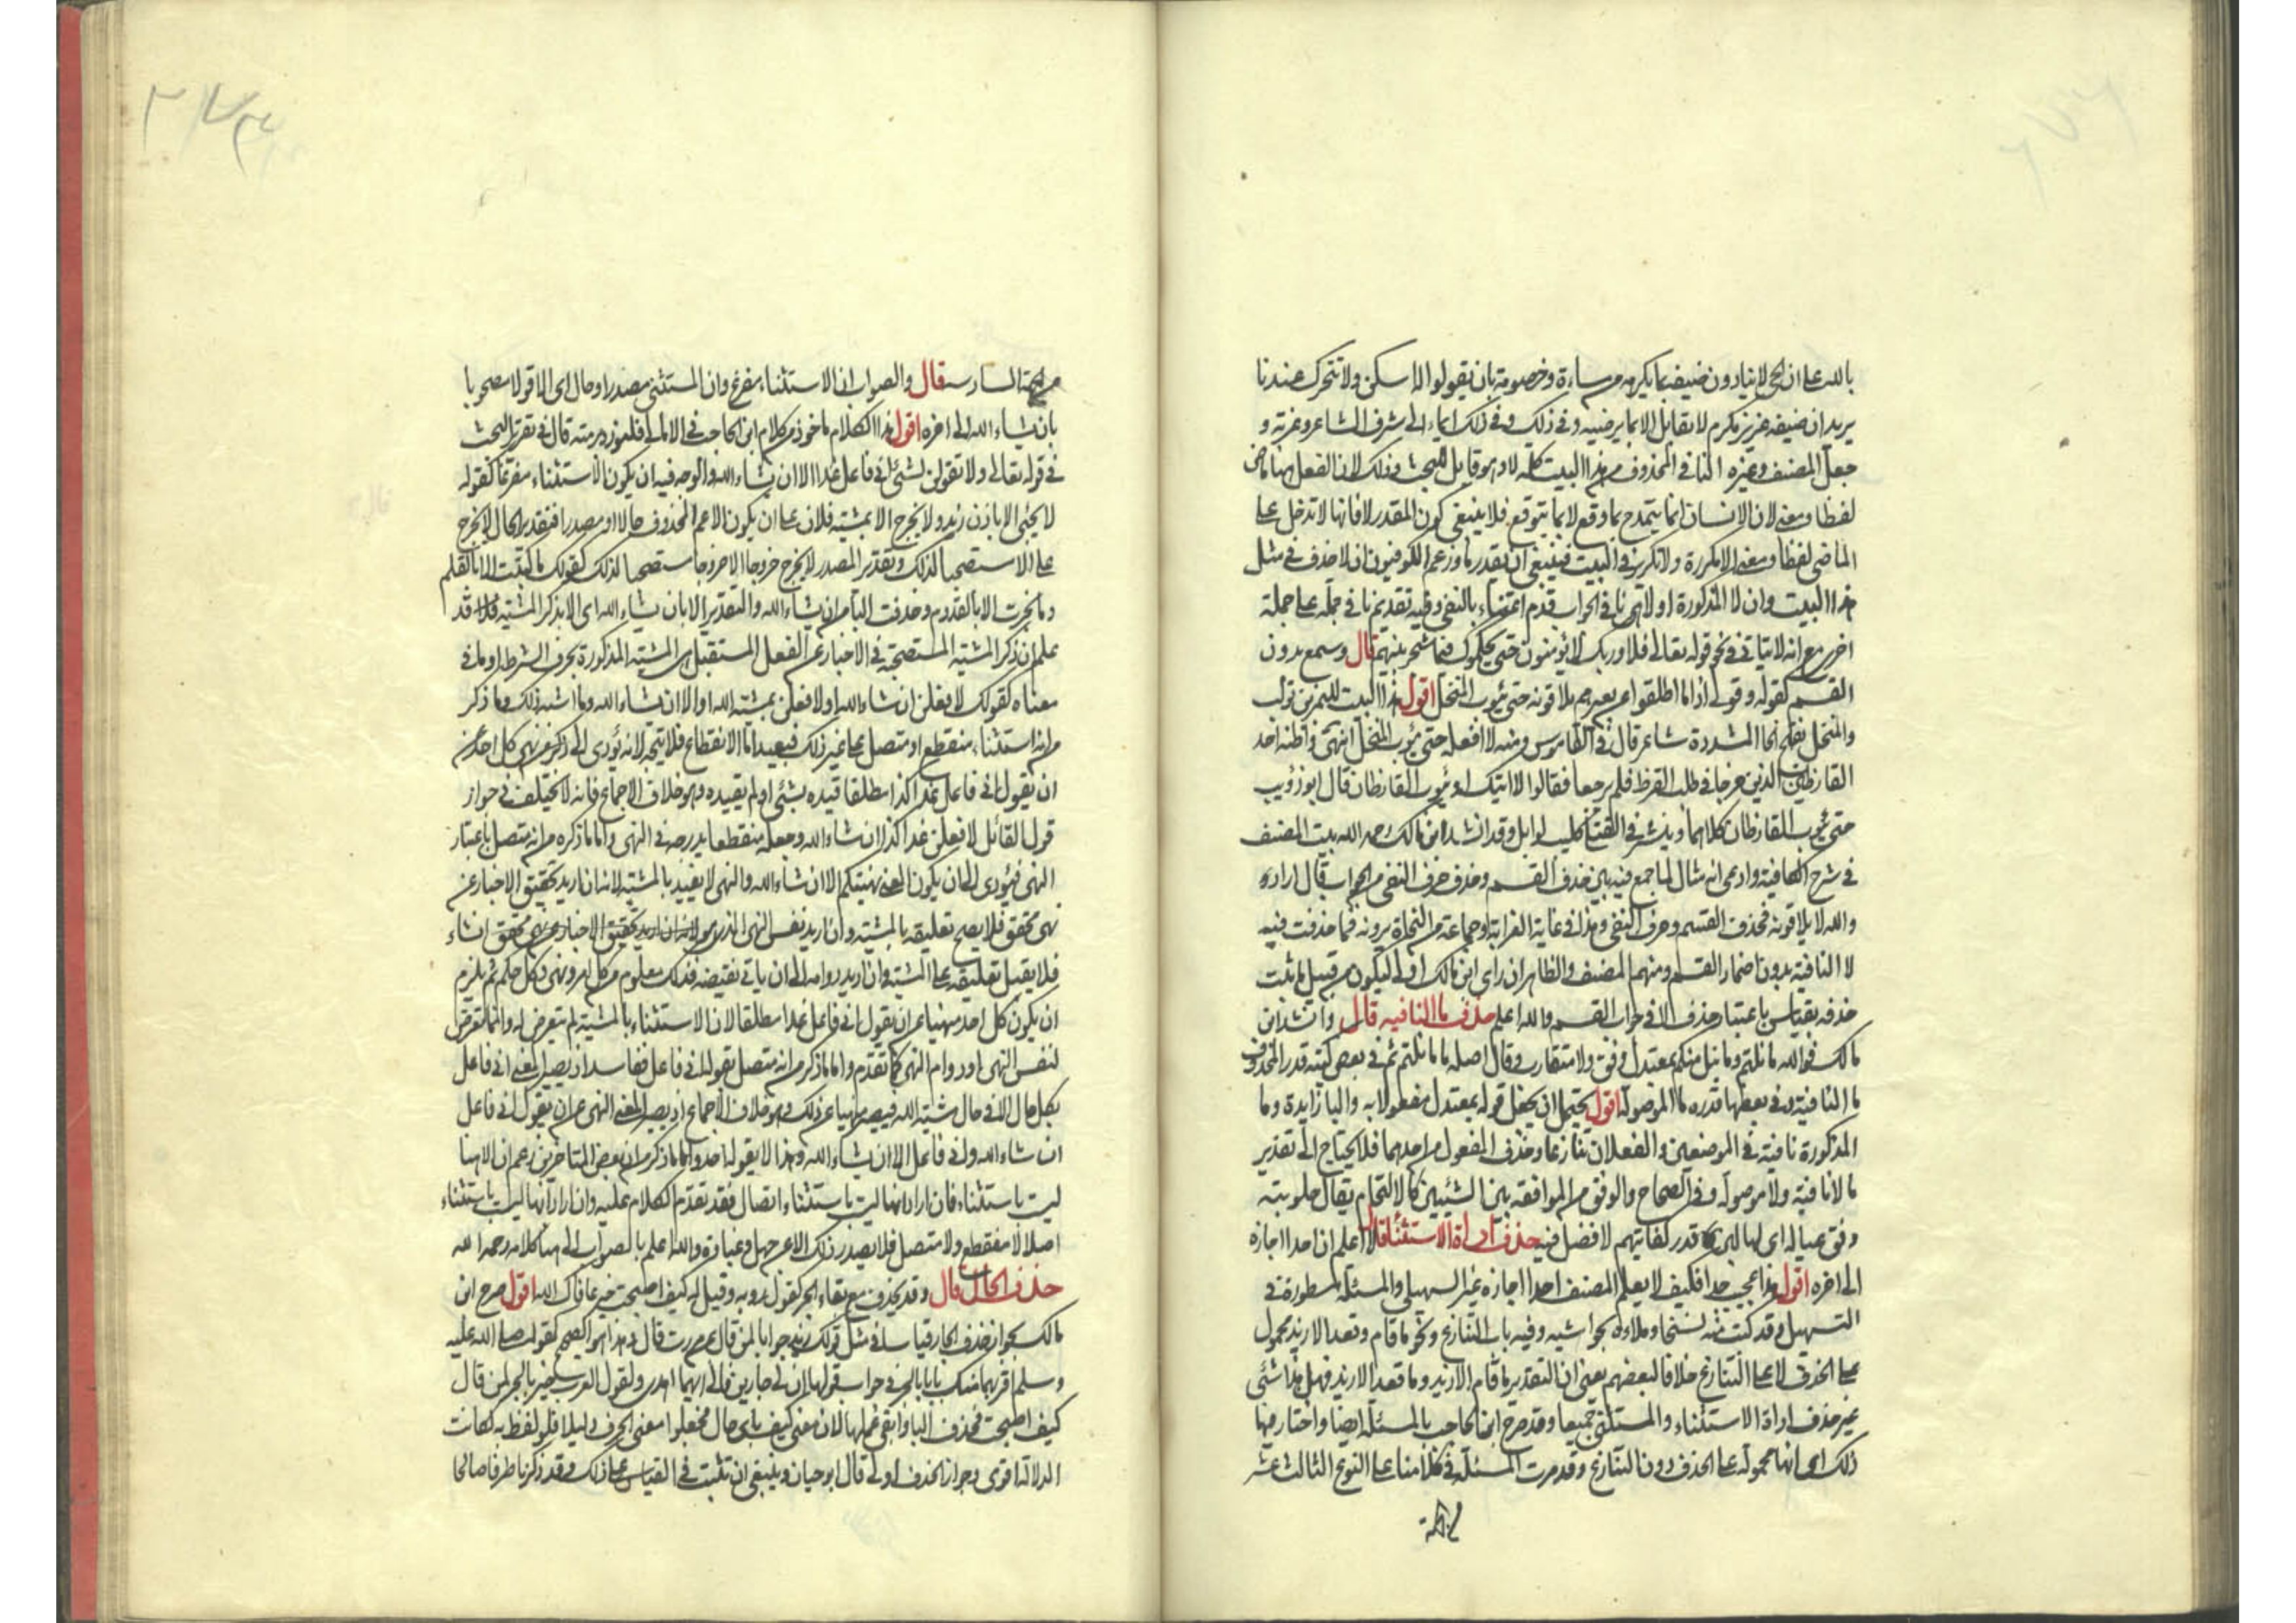 بالله على ان الحي لا ينادون ضيفه بما يكرهه من مساءة وخصومة بان يقولوا له اسكن ولا تتحرك عندنا
يريد ان ضيفه عزيز مكرم لا يقابل الا بما يرضيه وفي ذلك وفي ذلك ايماء الى شرف الشاعر وعزته و
جعل المصنف وغيره النافي المحذوف من هذا البيت كلمة لا وهو قابل للبحث وذلك لان الفعل هنا ماض
لفظا ومعنى لان الانسان انما يتمدح بما وقع لا بما يتوقع فلا ينبغي كون المقدر لا فانها لا تدخل على
الماضي لفظا ومعنى الا مكررة ولا تكرر في البيت فينبغي ان يقدر ما وزعم الكوفيون ان لا حذف في مثل
هذا البيت وان لا المذكورة اولا هي نافي الجواب قدم اعتناء بالنفي وفيه تقديم ما في جملة على جملة
اخرى مع انه لا يتاتى في نحو قوله تعالى فلا وربك لا يؤمنون حتى يحكموك فيما شجر بينهم قال وسمع بدون
القسم كقوله وقولي اذا ما اطلقوا عن بعيرهم يلاقونه حتى يؤوب المنخل اقول هذا البيت للنمر بن تولب
والمنخل بفتح الخا المشددة شاعر قال في القاموس ومنه لا افعله حتى يؤوب المنخل انتهى واظنه احد
القارظين الذين خرجا في طلب القرظ فلم يرجعا فقالوا لا اتيك او يؤوب القارظان قال ابو ذؤيب
حتى يؤوب القارظان كلاهما وينشر في القتلى كليب لوائل وقد انشد ابن مالك رحمه الله بيت المصنف
في شرح الكافية وادعى انه مثال لما جمع فيه بين حذف القسم وحذف حرف النفي من الجواب قال اراد
والله لا يلاقونه فحذف القسم وحرف النفي وهذا في غاية الغرابة وجماعة من النحاة يرونه فيما حذفت فيه
لا النافية بدون اضمار القسم ومنهم المصنف والظاهر ان راى ابن مالك اولى ليكون من قبيل ما ثبت
حذفه بقياس باعتبار حذف لا في جواب القسم والله اعلم حذف ما النافيه قال وانشد ابن
مالك فوالله ما نلتم وما نيل منكم بمعتدل وفق ولا متقارب وقال اصله ما ما نلتم ثم في بعض كتبه قدر المحذوف
ما النافية وفي بعضها قدره ما الموصولة اقول يحتمل ان يجعل قوله بمعتدل مفعولا به والبا زايدة وما
المذكورة نافية في الموضعين والفعلان تنازعا وحذف المفعول من احدهما فلا يحتاج الى تقدير
ما لا نافية ولا موصولة وفي الصحاح والوفق من الموافقة بين الشيئين كالالتحام يقال حلوبته
وفق عياله اى لها لبن قدر كفايتهم لا فضل فيه حذف اداة الاستثنا قال لا اعلم ان احدا اجازه
الى اخره اقول هذا عجب جدا فكيف لا يعلم المصنف احدا اجازه غير السهيلي والمسئلة مسطورة في
التسهيل وقد كتب منه نسخا وملاءه بحواشيه وفيه باب التنازع ونحو ما قام وقعد الا زيد محمول
على الحذف لا على التنازع خلافا لبعضهم يعني ان التقدير ما قام الا زيد وما قعد الا زيد فهل هذا شئ
غير حذف اداة الاستثناء والمستثنى جميعا وقد صرح ابن الحاجب بالمسئلة ايضا واختار فيها
ذلك اى انها محمولة على الحذف دون التنازع وقد مرت المسئلة في كلامنا على النوع الثالث عشر
من الجهة السادسه قال والصواب ان الاستثناء مفرغ وان المستثنى مصدر او حال اى الا قولا مصحوبا
بان يشاء الله الى اخره اقول هذا الكلام ماخوذ من كلام ابن الحاجب في الامالي فلنورد رمته قال في تقرير البحث
في قوله تعالى ولا تقولن لشئ اني فاعل غدا الا ان يشاء الله والوجه فيه ان يكون الاستثناء مفرغا كقوله
لا يجئ الا باذن زيد ولا يخرج الا بمشيته فلان على ان يكون الاعم المحذوف حالا او مصدرا فتقدير الحال لا يخرج
على الا مستصحبا لذلك وتقدير المصدر لا يخرج خروجا الا خروجا مستصحبا لذلك كقولك ما كتبت الا بالقلم
وما نجرت الا بالقدوم وحذفت البا من ان يشاء الله والتقدير الا بان يشاء الله اى الا بذكر المشية فلا قد
علم ان ذكر المشية المستصحبة في الاخبار عن الفعل المستقبل هي المشية المذكورة بحرف الشرط او ما في
معناه كقولك لافعلن ان شاء الله او لافعلن بمشية الله او الا ان يشاء الله وما اشبه ذلك وما ذكر
من انه استثناء منقطع او متصل على غير ذلك فبعيد اما الانقطاع فلا يتجه لانه يؤدى الى ذكر نهى كل احد عن
ان يقول اني فاعل غدا كذا مطلقا قيده بشئ او لم يقيده وهو خلاف الاجماع فانه لا يختلف في جواز
قول القائل لافعلن غدا كذا ان شاء الله وجعله منقطعا يدرجه في النهي واما ما ذكره من انه متصل باعتبار
النهي فيؤدى الى ان يكون المعنى نهيتكم الا ان شاء الله والنهي لا يقيد بالمشية لانه ان اريد تحقيق الاخبار عن
نهى محقق فلا يصح تعليقه بالمشية وان اريد نفس النهي الذي هو لانه ان اريد تحقيق الاخبار عن نهى محقق انشاء
فلا يقبل تعليقه على المشية وان اريد دوامه الى ان ياتي نقيضه فذلك معلوم من كل امر ونهى وكل حكم ثم يلزم
ان يكون كل احد منهيا عن ان يقول اني فاعل غدا مطلقا لان الاستثناء بالمشية لم يتعرض له وانما تعرض
لنفس النهي او دوام النهي كما تقدم واما ما ذكر من انه متصل بقوله اني فاعل ففاسد اذ يصير المعنى اني فاعل
بكل حال الا في حال مشية الله فيصير منهيا عن ذلك وهو خلاف الاجماع اذ يصير المعنى النهي عن ان يقول اني فاعل
ان شاء الله واني فاعل الا ان يشاء الله وهذا لا يقوله احد واما ما ذكر من ان بعض المتاخرين زعم ان الا هنا
ليت باستثناء فان اراد انها ليت باستثناء اتصال فقد تقدم الكلام عليه وان اراد انها ليت باستثناء
اصلا لا منقطع ولا متصل فلا يصدر ذلك الا عن جهل وغباوة والله اعلم بالصواب الى هنا كلامه رحمه الله
حذف الحال قال وقد يحذف مع بقاء الجر كقول روبه وقيل له كيف اصبحت خير عافاك الله اقول صرح ابن
مالك بجواز حذف الجار قياسا في مثل قولك زيد جوابا لمن قال بمن مررت قال وهذا هو الصحيح كقوله صلى الله عليه
وسلم اقربهما منك بابا بالجر في جواب قولها ان لي جارين فالى ايهما اهدى ولقول العرب خير بالجر لمن قال
كيف اصبحت فحذف البا وابقى عملها لان معنى كيف باى حال فجعلوا معنى الحرف دليلا فلو لفظ به لكانت
الدلالة اقوى وجواز الحذف اولى قال ابو حيان وينبغي ان تثبت في القياس على ذلك وقد ذكرنا طرفا صالحا